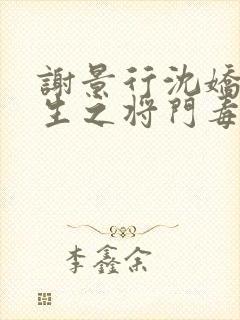 謝景行沈嬌
生之将門毒
李鑫余